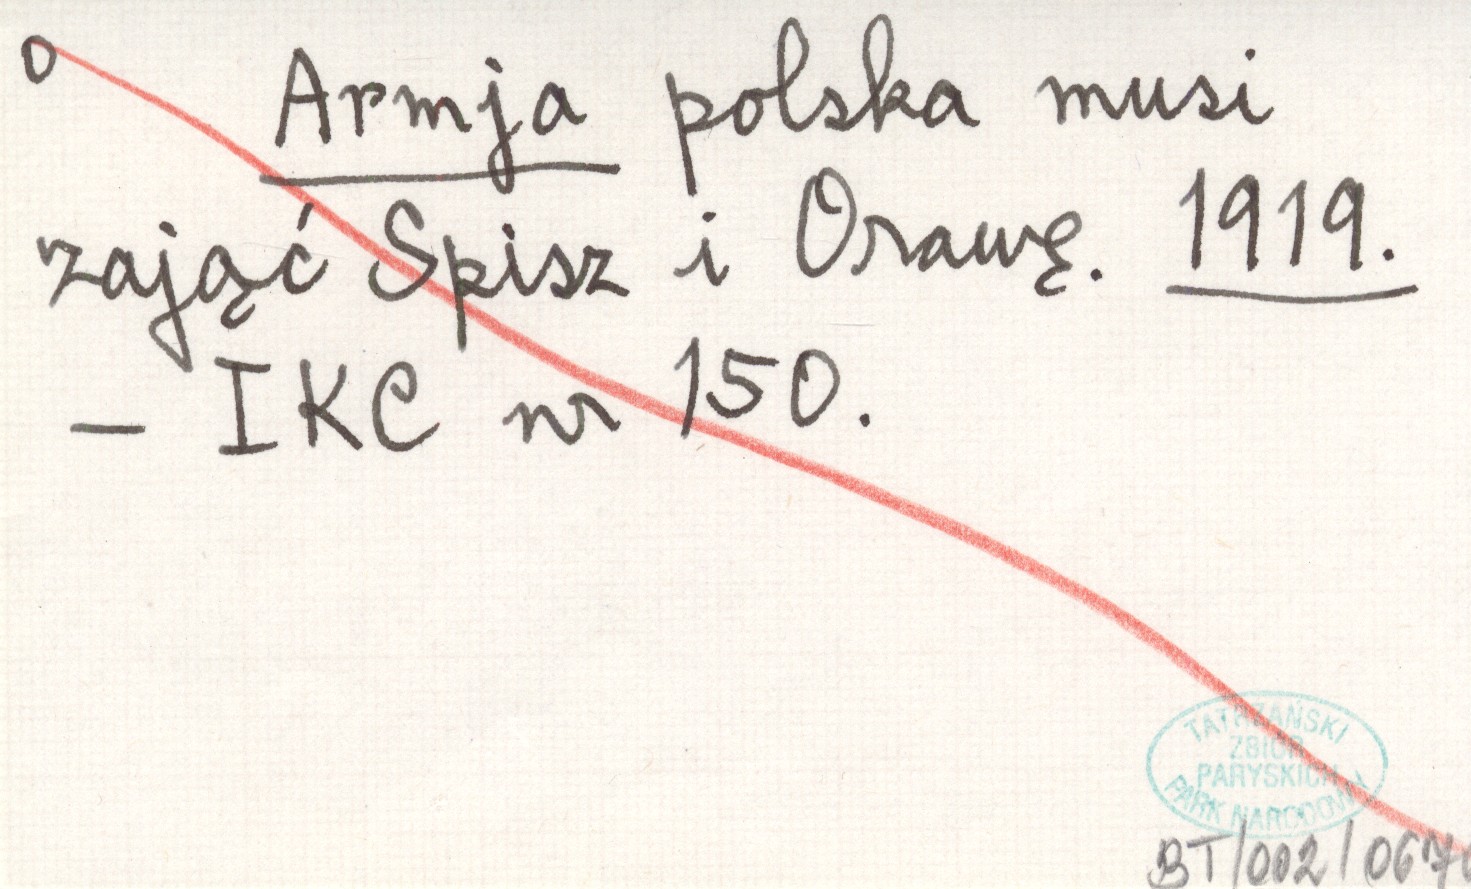 o
Armja polska musi
zająć Spisz i Orawę. 1919.
— IKC nr 150.
TATRZAŃSKI
ZBIÓR
PARYSKICH
PARK NARODOWY
BT/002/067